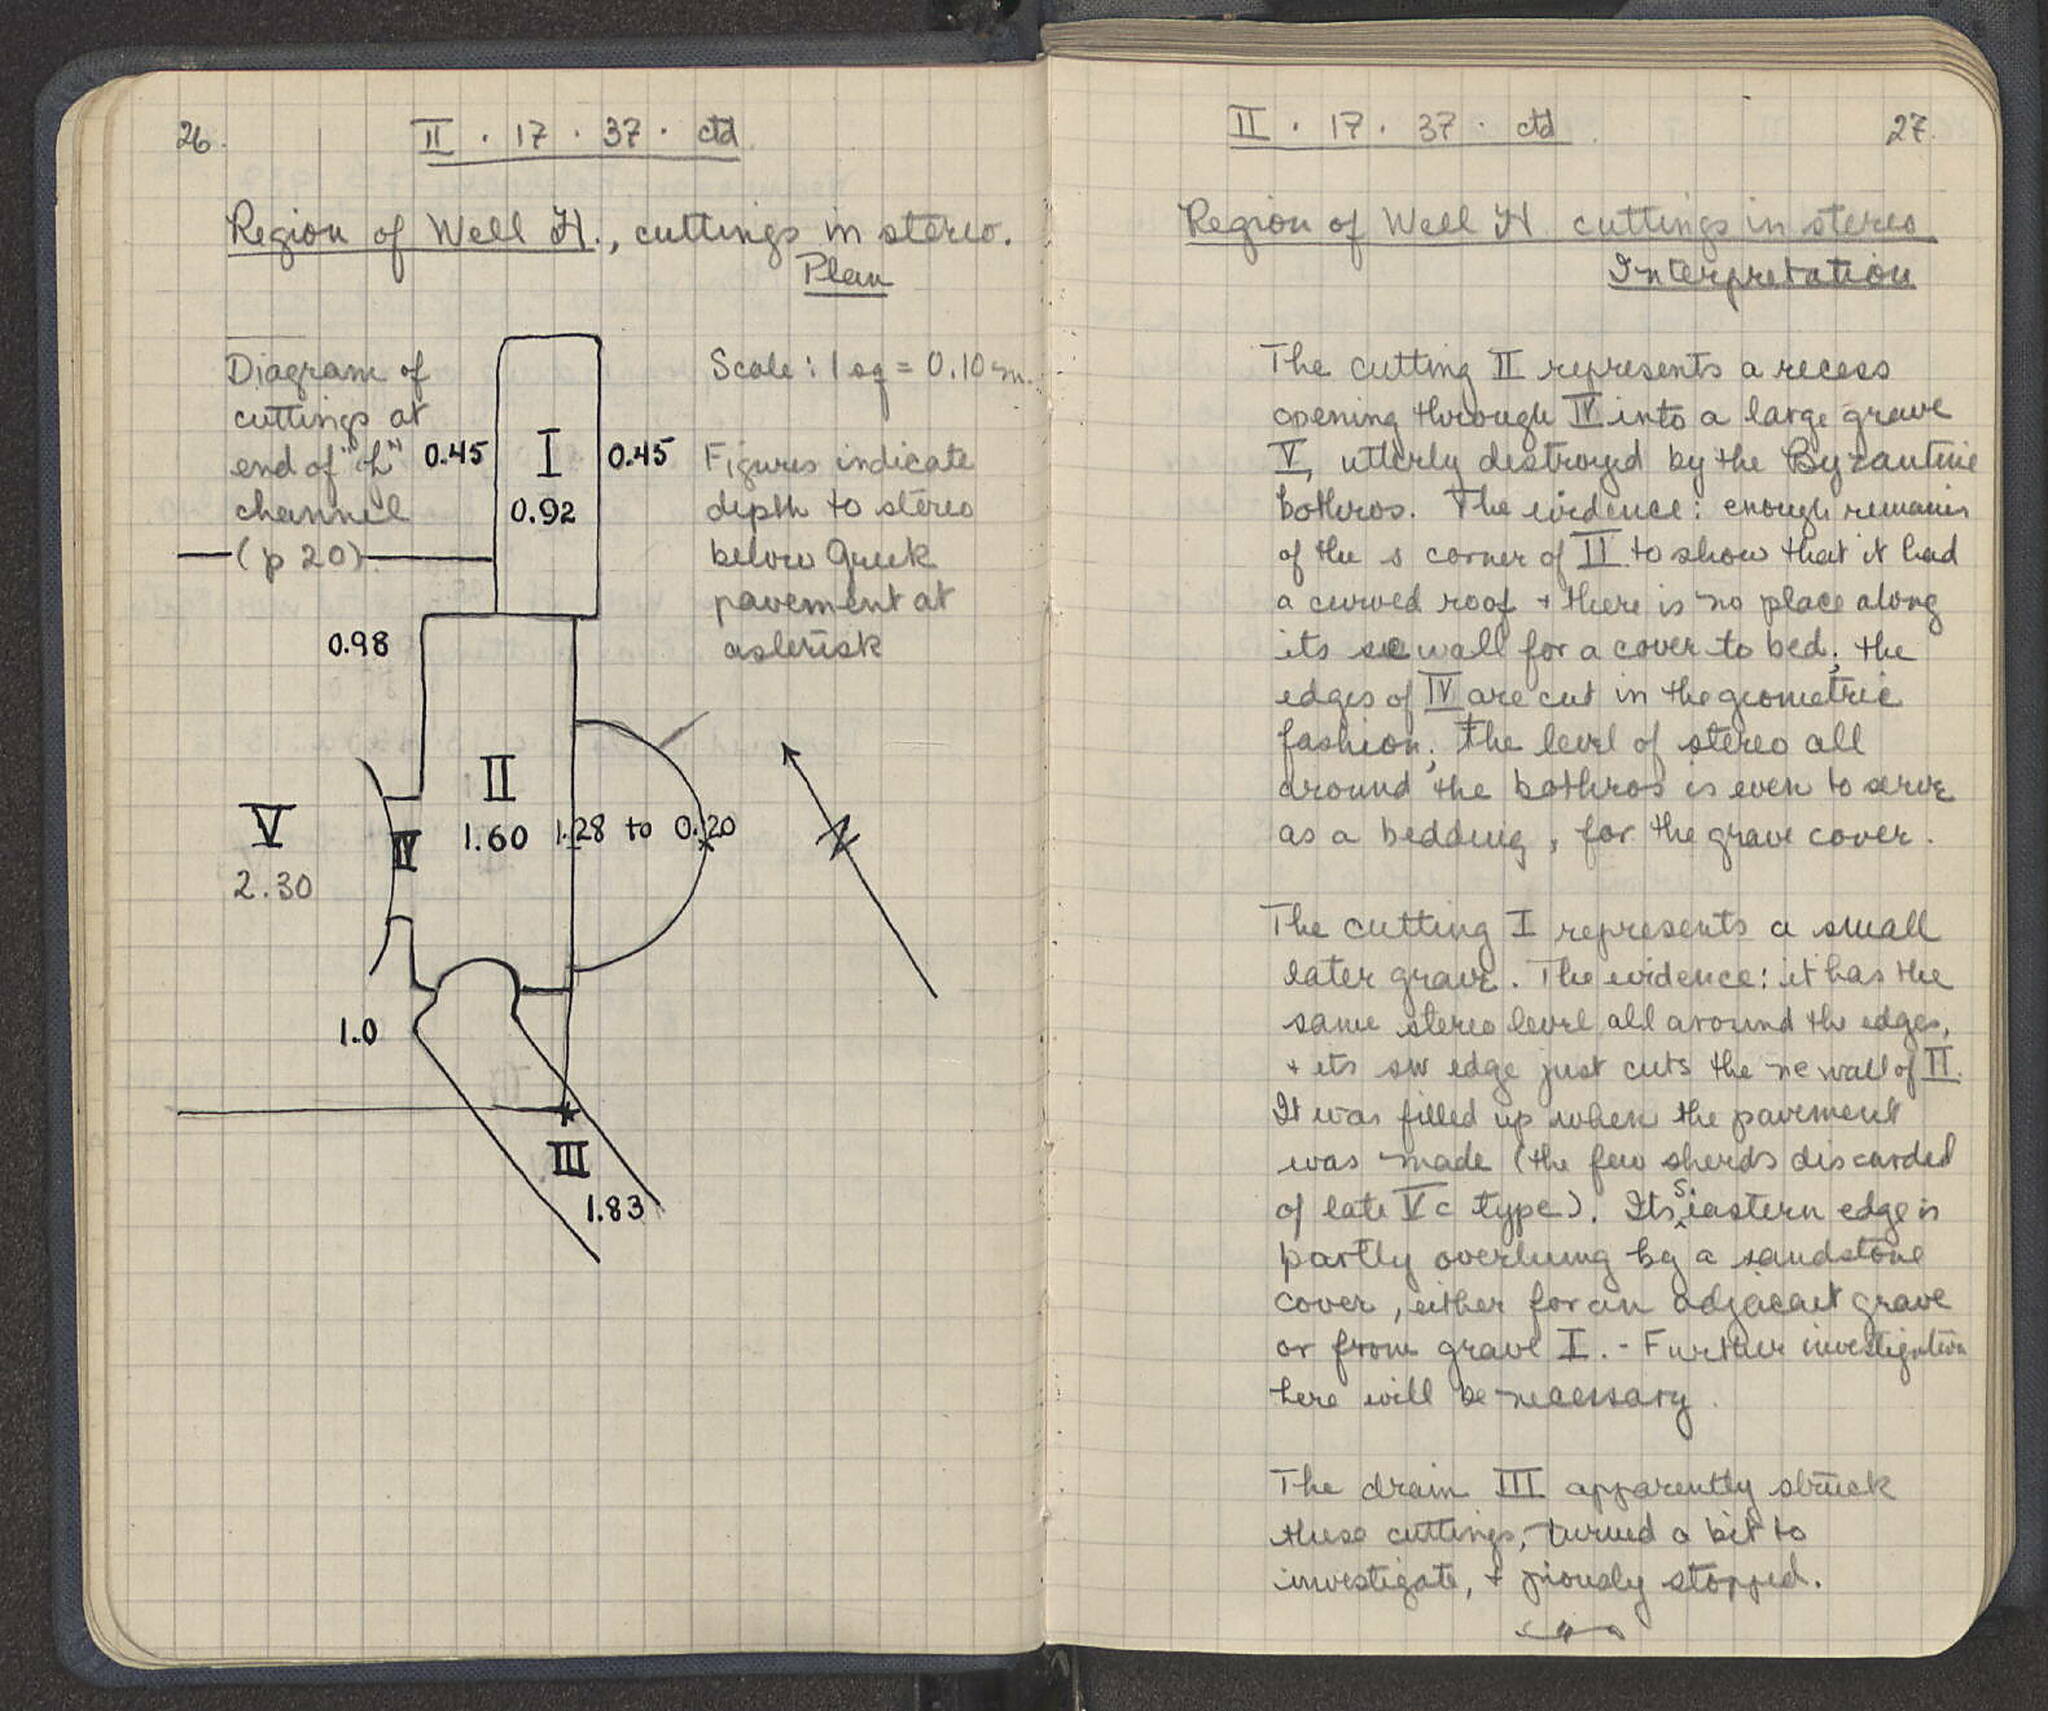 26.
II . 17 . 37 . ctd
Region of Well H., cuttings in stereo.
Plan
Diagram of
cuttings at
end of "h"
channel
(p 20)
Scale: 1 sq = 0.10 m.
Figures indicate
depth to stereo
below Greek
pavement at
asterisk
0.45
I
0.45
0.92
0.98
II
1.60
1.28 to 0.20
V
2.30
IV
N
1.0
*
III
1.83
II . 17 . 37 . ctd
27.
Region of Well H cuttings in stereo
Interpretation
The cutting II represents a recess
opening through IV into a large grave
V, utterly destroyed by the Byzantine
bothros. The evidence: enough remains
of the s corner of II to show that it had
a curved roof + there is no place along
its se wall for a cover to bed; the
edges of IV are cut in the geometric
fashion; the level of stereo all
around the bothros is even to serve
as a bedding, for the grave cover.
The cutting I represents a small
later grave. The evidence: it has the
same stereo level all around the edges,
+ its sw edge just cuts the ne wall of II.
It was filled up when the pavement
was made (the few sherds discarded
of late V c type). Its s eastern edge is
partly overhung by a sandstone
cover, either for an adjacent grave
or from grave I. - Further investigation
here will be necessary.
The drain III apparently struck
these cuttings, turned a bit to
investigate, + piously stopped.